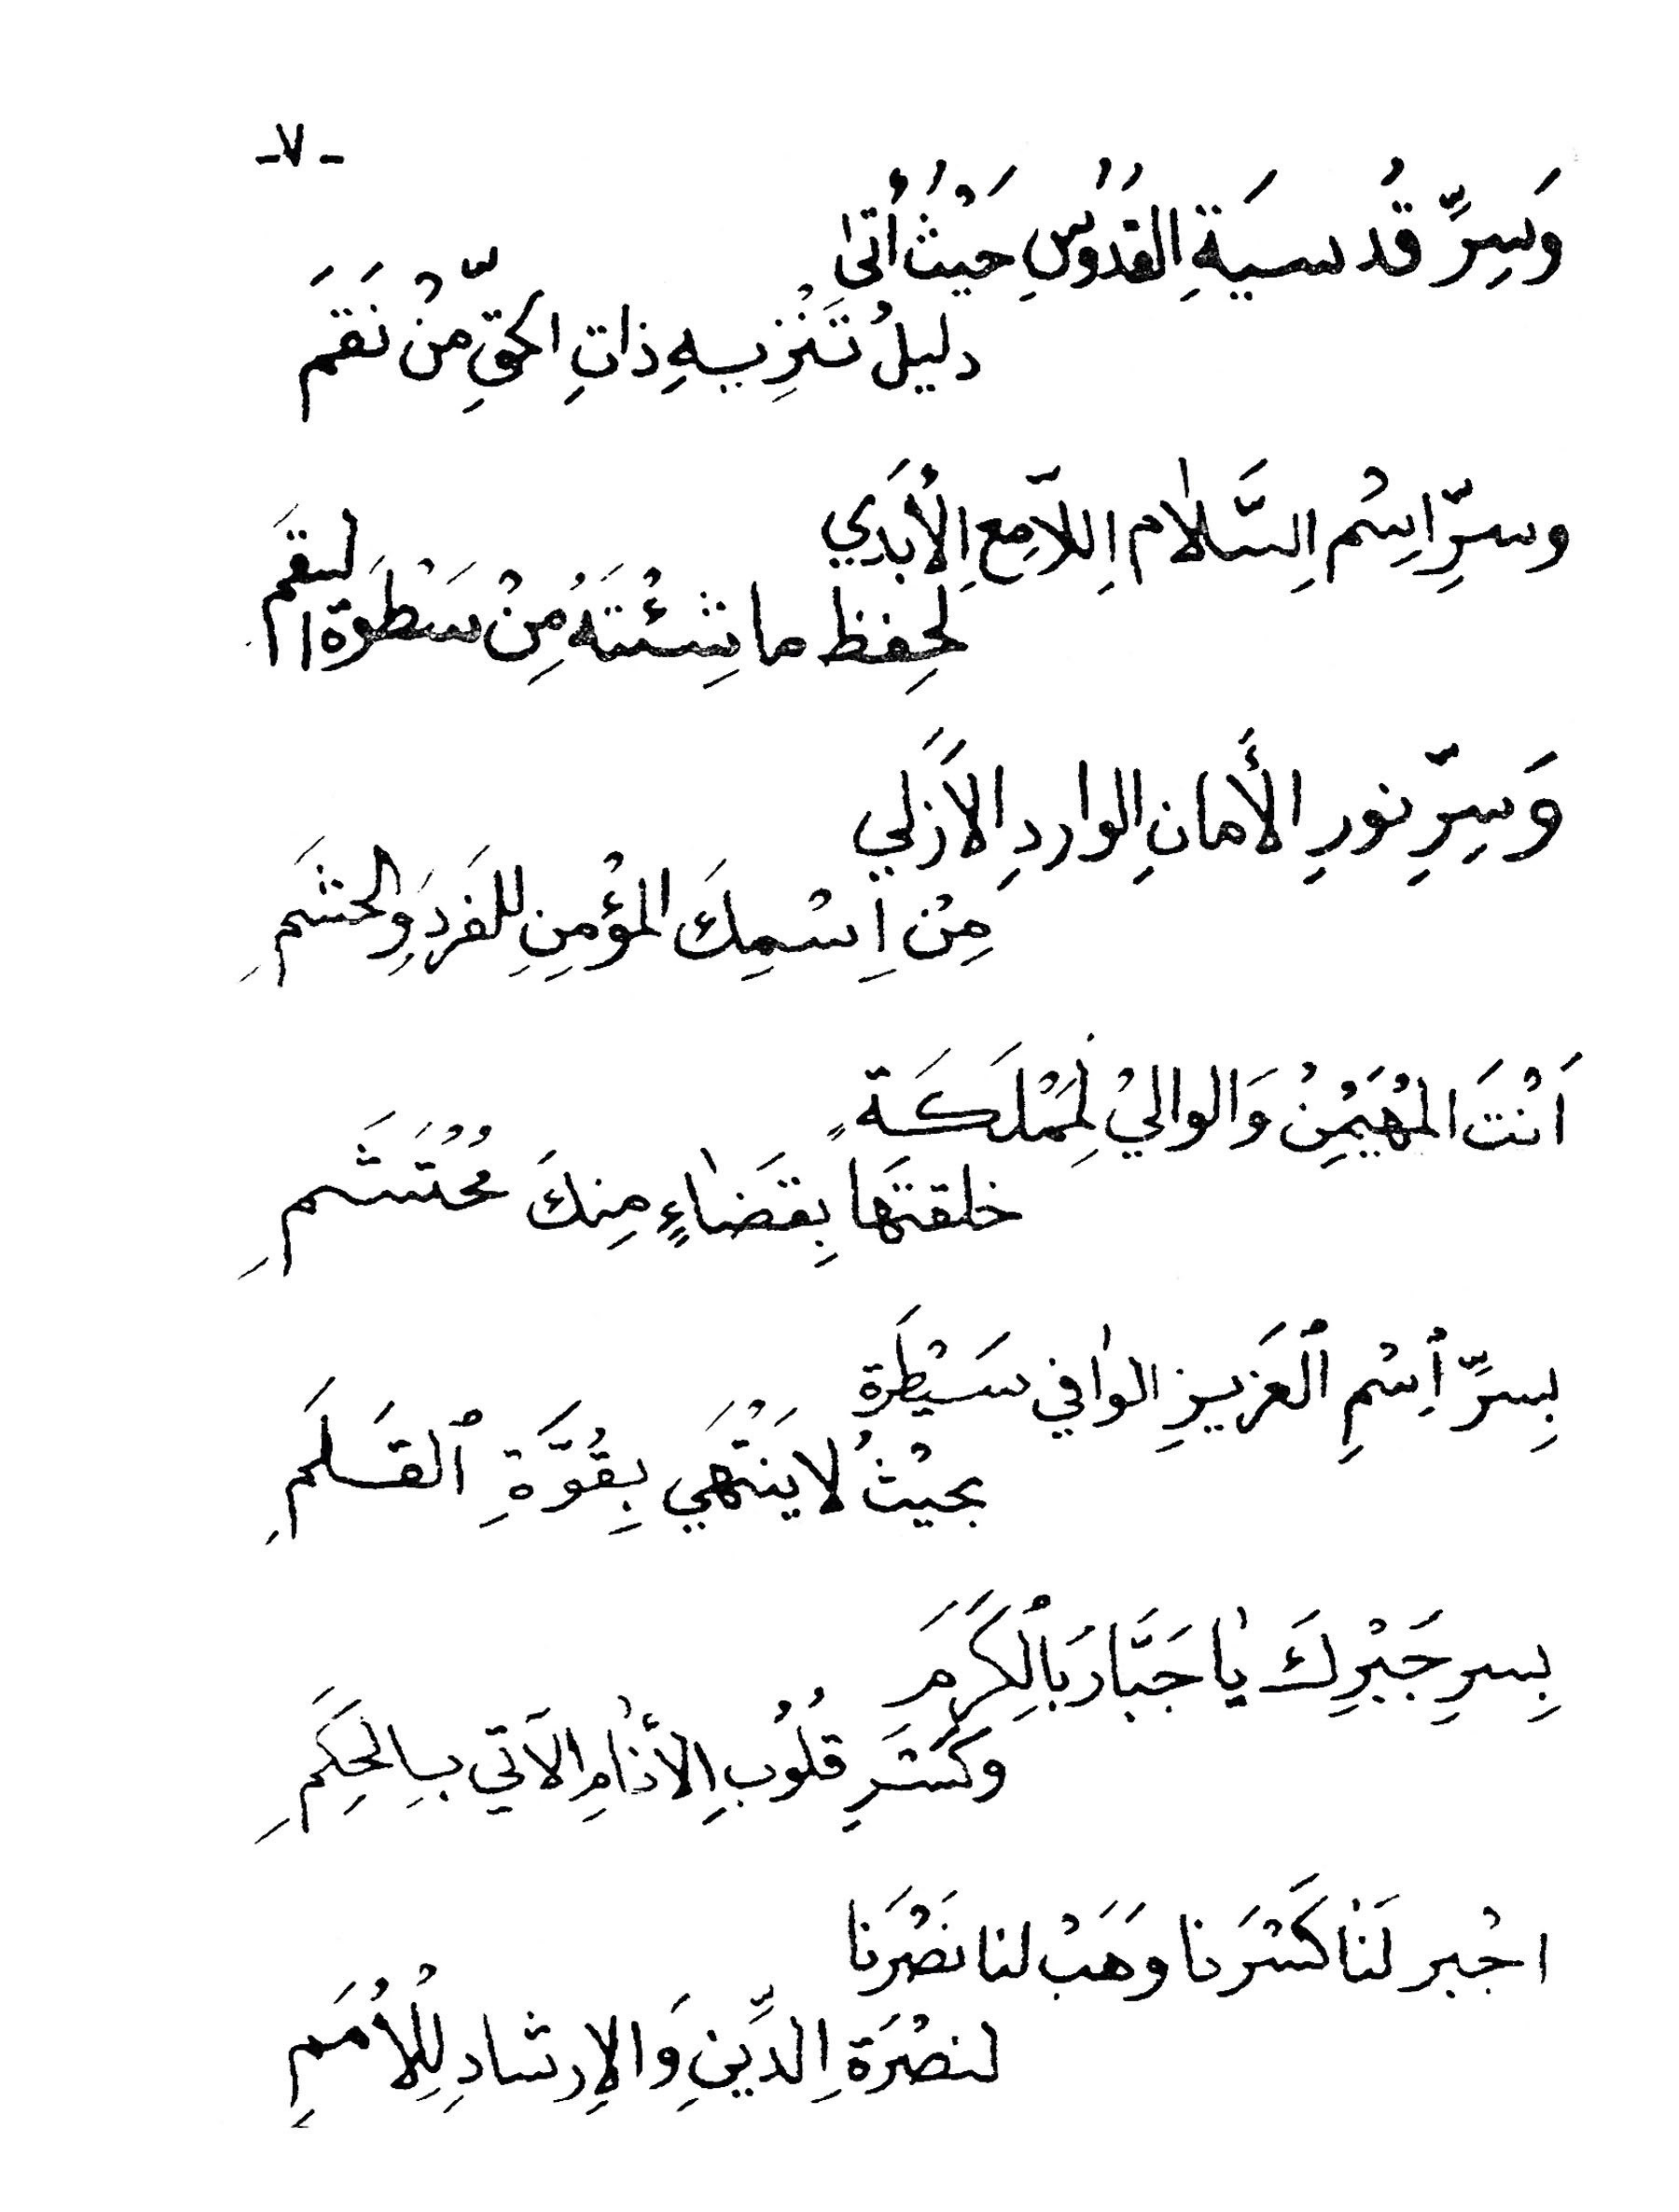 -٧-
وَسِرِّ قُدسيَةِ القُدُوسِ حَيْثُ أُتىٰ
دليلُ تَنْزِيهِ ذاتِ الحقِّ مِنْ نَقَمَ
وسرِّ اسِْم السَّلٰام اللآمِعِ الأَبَدِي
لحِفظ ما شِئْتَهُ مِنْ سَطْوَة النقَم
وَسِرِّ نورِ الأَمانِ الواردِ الاَزَلي
مِنْ اِسْمِكَ المؤْمِنِ للفَردِ والحشَمِ
اَنْتَ المُهَيْمِنُ وَالواليْ لِمَمْلَكَةٍ
خلقتَهَا بِقَضٰاءٍ مِنكَ مُحْتَشَمِ
بِسرِّ ٱِسْمِ ٱلعَزيزِ الوٰافي سَيْطَرَة
بحيْثُ لا يَنْتَهَي بِقُوَّةِ ٱلقَلَمِ
بِسرِ جَبْرِكَ يٰا جَبَّارَ بِٱلكَرَمَ
وكَسْرِ قُلُوبِ الأَنٰامِ الاَتي بالحِكَمِ
اجْبر لَنٰا كَسْرَنا وهَبْ لنا نَصْرَنا
لنصْرَةِ الدِّينِ وَالاِرشادِ لِلْأُمَمِ